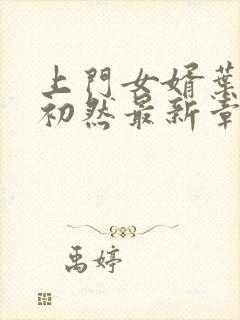 上門女婿葉
初然最新章
禹婷